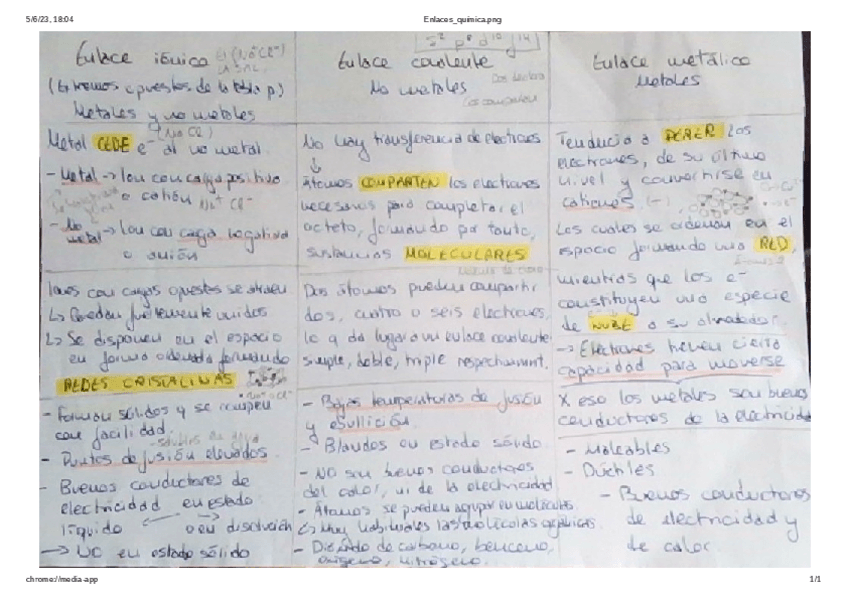 5/6/23, 18:04
Enlaces_química.png
Enlace iónico (Na+Cl-)
LA SAL
(Extremos opuestos de la tabla p.)
Metales y no metales
Metal CEDE e- al no metal.
(Na Cl)
- Metal -> Ion con carga positiva
o catión Na+ Cl-
- No metal -> Ion con carga negativa
o anión
Iones con cargas opuestas se atraen
↳ Quedan fuertemente unidos
↳ Se disponen en el espacio
en forma ordenada formando
REDES CRISTALINAS
- Forman sólidos y se rompen
con facilidad.
- solubles en agua
- Puntos de fusión elevados.
- Buenos conductores de
electricidad en estado
líquido o en disolución
-> NO en estado sólido
s2 p6 d10 f14
Enlace covalente
No metales
Los comparten
No hay transferencia de electrones
↓
Átomos COMPARTEN los electrones
necesarios para completar el
octeto, formando por tanto,
sustancias MOLECULARES
Dos átomos pueden compartir
dos, cuatro o seis electrones,
lo q da lugar a un enlace covalente
simple, doble, triple respectivamnt.
- Bajas temperaturas de fusión
y ebullición.
- Blandos en estado sólido.
- NO son buenos conductores
del calor, ni de la electricidad
- Átomos se pueden agrupar en moléculas
↳ Muy habituales las moléculas orgánicas.
- Dióxido de carbono, benceno,
oxígeno, nitrógeno.
Enlace metálico
Metales
Tendencia a PERDER los
electrones, de su último
nivel y convertirse en
cationes.
Los cuales se ordenan en el
espacio formando una RED,
mientras que los e-
constituyen una especie
de NUBE a su alrededor.
-> Electrones tienen cierta
capacidad para moverse
X eso los metales son buenos
conductores de la electricidad
- Maleables
- Dúctiles
- Buenos conductores
de electricidad y
de calor
chrome://media-app
1/1